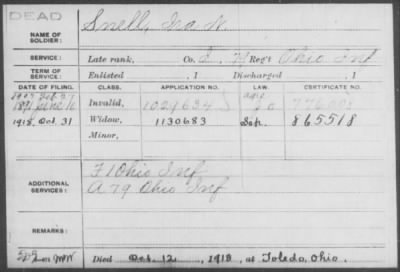 DEAD
NAME OF SOLDIER: Snell, Ira N.
SERVICE: Late rank, Co. I, 74 Reg't Ohio Inf
TERM OF SERVICE: Enlisted , 1 Discharged , 1
DATE OF FILING. CLASS. APPLICATION NO. LAW. CERTIFICATE NO.
1891 June 16 Invalid, 1029634
1918, Oct. 31 Widow, 1130683 Sep. 865518
Minor,
ADDITIONAL SERVICES: F 1 Ohio Inf
A 79 Ohio Inf
REMARKS:
Died Oct. 12, 1918, at Toledo, Ohio.